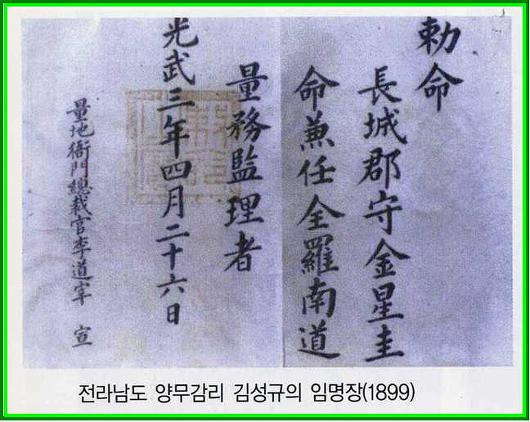 勅命
長城郡守金星圭
命兼任全羅南道
量務監理者
光武三年四月二十六日
量地衙門總裁官李道宰 宣
전라남도 양무감리 김성규의 임명장(1899)